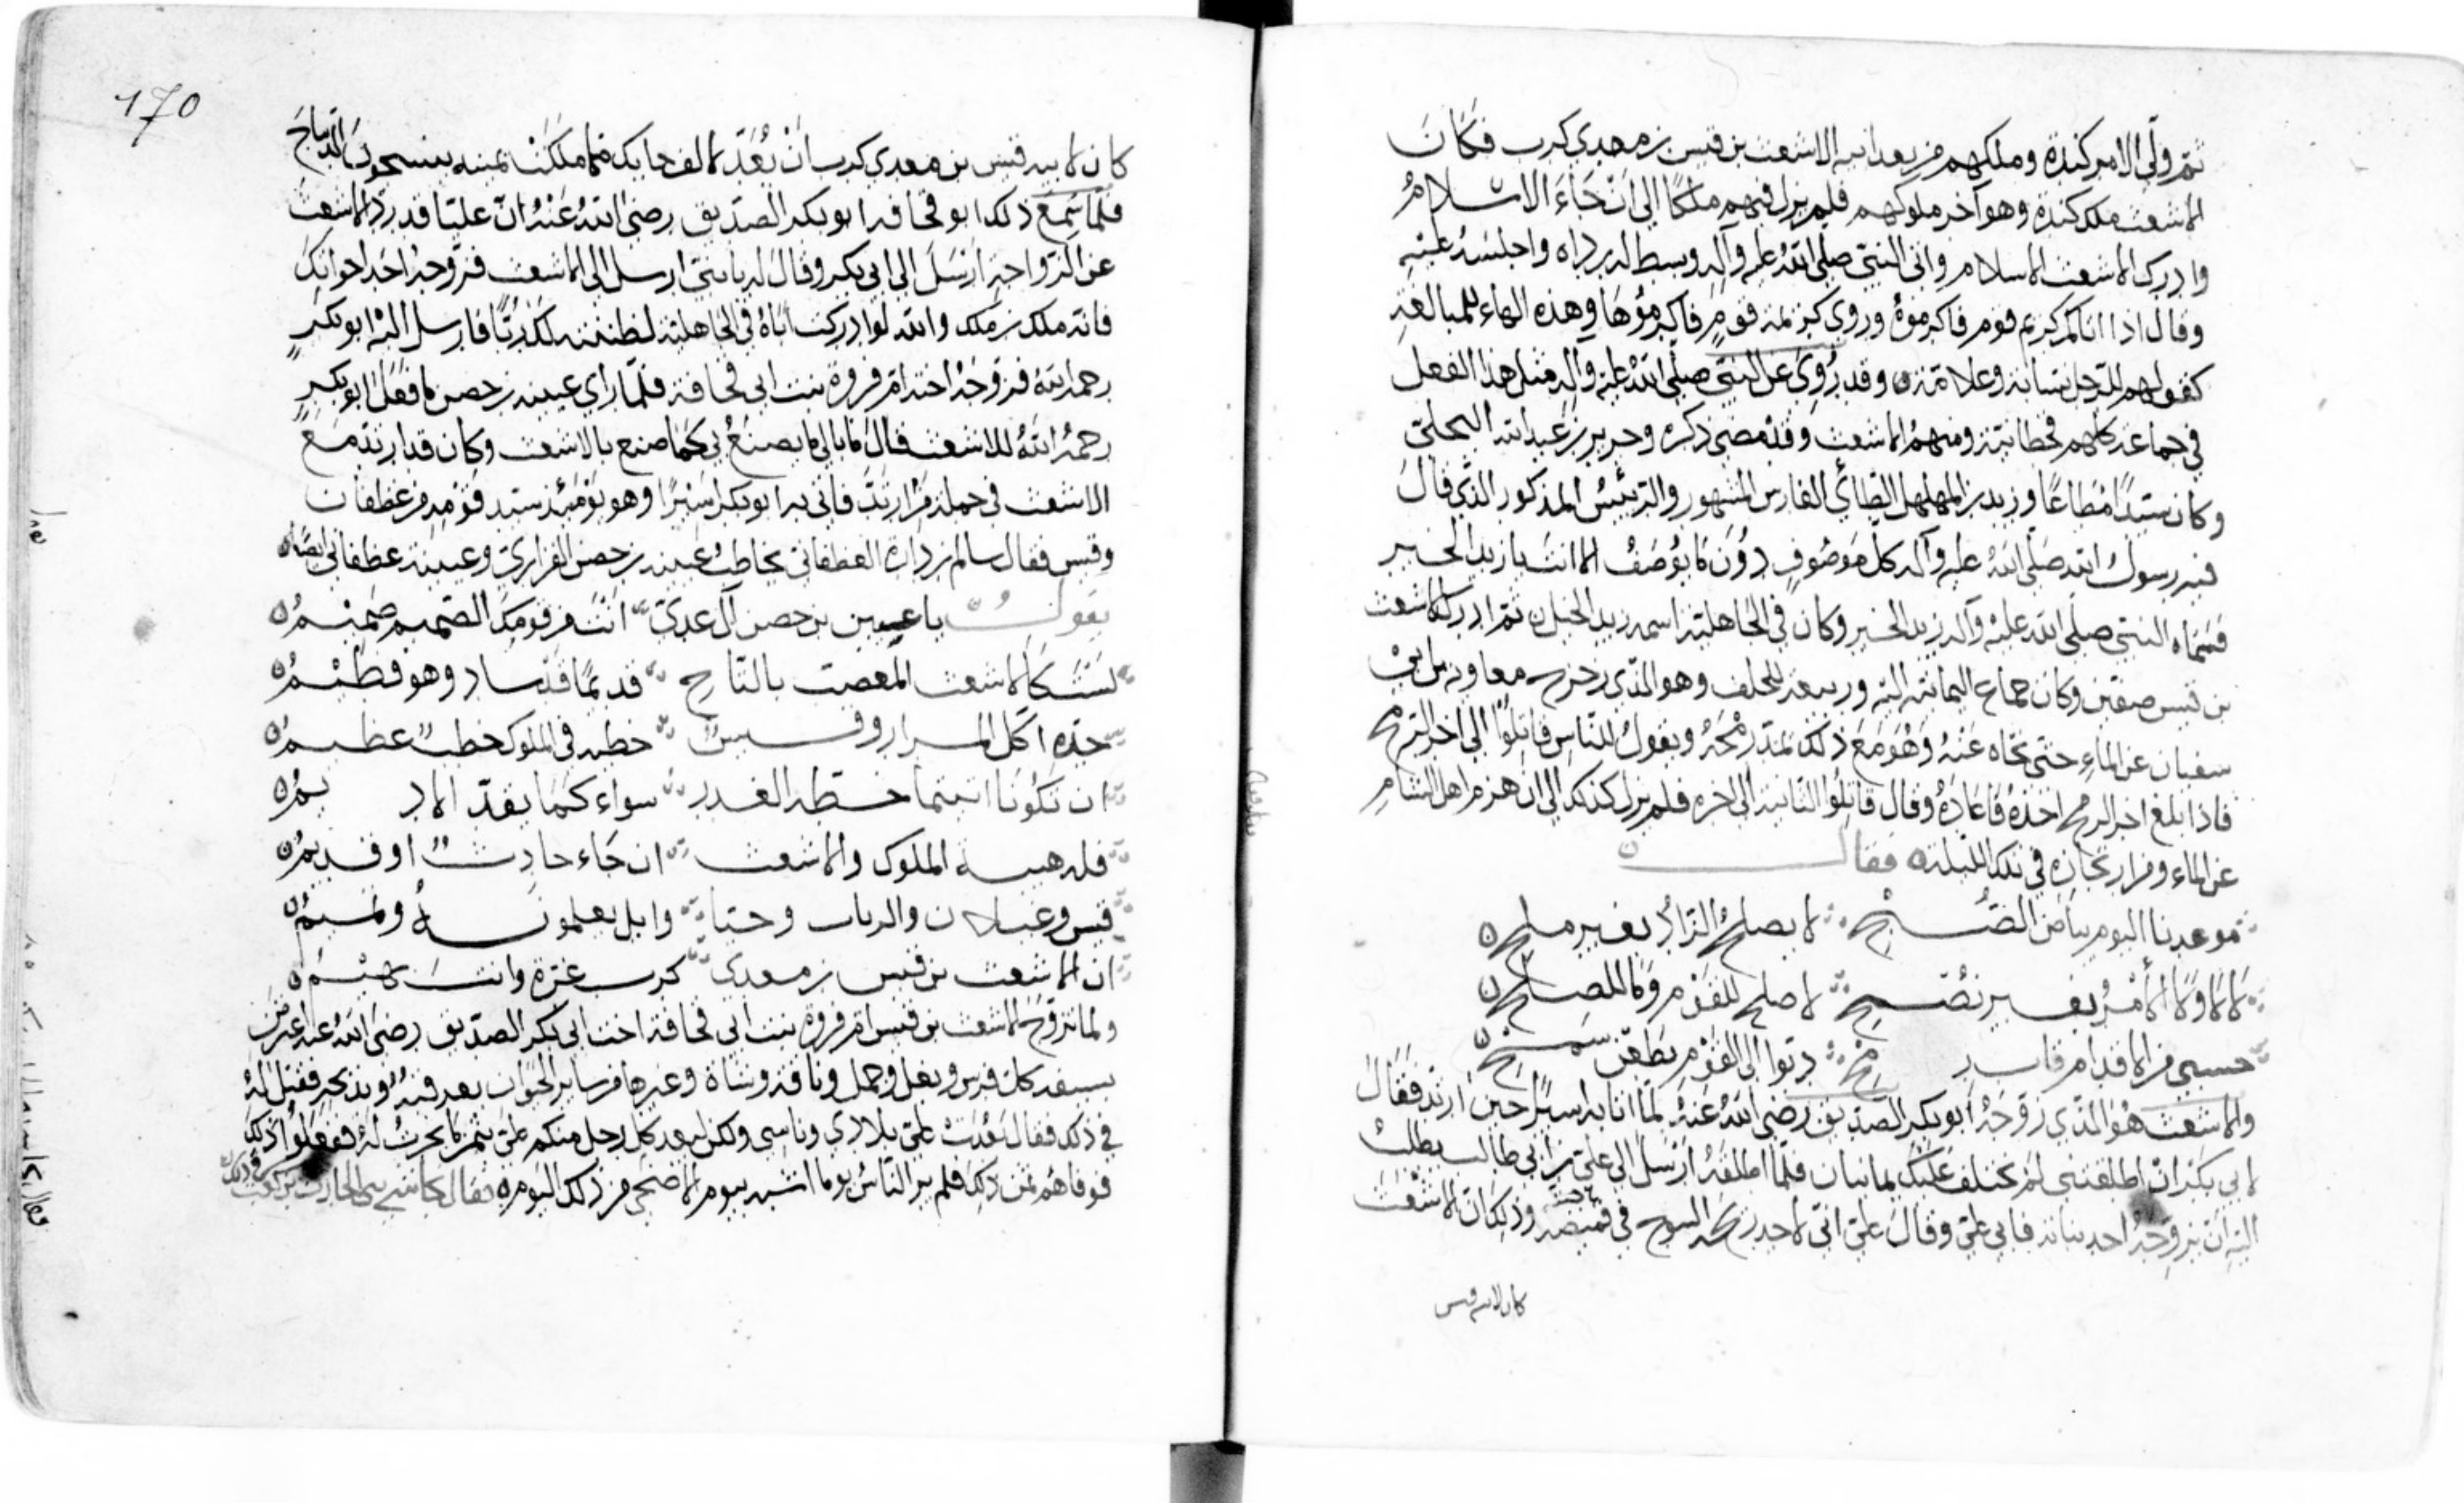 ثم ولّى الامر كندة وملكهم من بعد ابيه الاشعث بن قيس بن معدي كرب فكان
الاشعث ملك كندة وهو آخر ملوكهم فلم يزل فيهم ملكًا الى ان جاء الاسلام
وادرك الاشعث الاسلام واتى النبي صلى الله عليه وآله وبسط له برداه واجلسه عليه
وقال اذا اتاكم كريم قوم فاكرموه وروي كريمة قومٍ فاكرموها وهذه الهاء للمبالغة
كقولهم للرجل نسابة وعلامة ٥ وقد رُوي عن النبي صلى الله عليه وآله مثل هذا الفعل
في جماعة كلهم قحطانية ومنهم الاشعث وقد مضى ذكره وجرير بن عبد الله البجلي
وكان سيدًا مُطاعًا وزيد بن المهلهل الطائي الفارس المشهور والرئيس المذكور الذي قال
فيه رسول الله صلى الله عليه وآله كل موصوف دون ما يوصف الا انت يا زيد الخير
فسماه النبي صلى الله عليه وآله زيد الخير وكان في الجاهلية اسمه زيد الخيل ٥ ثم ادرك الاشعث
بن قيس صفين وكان جماع اليمانية اليه وربيعة للحلف وهو الذي زحزح معاوية بن ابي
سفيان عن الماء حتى نحاه عنه وهو مع ذلك يمدّ رمحه ويقول للناس قاتلوا الى اخر الرمح
فاذا بلغ اخر الرمح اخذه فاعاده وقال قاتلوا الثانية الى اخره فلم يزل كذلك الى ان هزم اهل الشام
عن الماء وقرار تجازه في تلك الليلة ٥ فقال
موعدنا اليوم بياض الصبح لا يصلح الزاد بغير ملح ٥
لا لا ولا الأمر بغير نصح لا صلح للقوم وما للصلح ٥
حسبي من الاقدام قاب رمح دبوا الى القوم بطعن سمح ٥
والاشعث هو الذي زوّجه ابو بكر الصديق رضي الله عنه لما اتا به اسيرًا حين ارتد فقال
لابي بكر ان اطلقتني لم يختلف عليك يمانيان فلما اطلقه ارسل الى علي بن ابي طالب يطلب
اليه ان يزوجه احد بناته فابى علي وقال علي اني لاجد ريح النسج في قميصه وذلك ان الاشعث
كان لابيه قيس
170
كان لابيه قيس بن معدي كرب ان يُعدّ لالف حايك مما ملكت يمينه ينسجون الديباج
فلما سمع ذلك ابو قحافة ابو بكر الصديق رضي الله عنه انّ عليًا قد ردّ الاشعث
عن الزواجة ارسل الى ابي بكر وقال له يا بني ارسل الى الاشعث فزوجه احد اخواتك
فانه ملك بن ملك والله لو ادركت اباه في الجاهلية لظننته لك ربًا فارسل اليه ابو بكر
رحمه الله فزوجه اخته ام فروة بنت ابي قحافة فلما راى عيينة بن حصن ما فعل ابو بكر
رحمه الله للاشعث قال ما بالي ما يصنع بي كما صنع بالاشعث وكان قد ارتد مع
الاشعث في جملة من ارتد فاتي به ابو بكر اسيرًا وهو يومئذ سيد قومه من غطفان
وقيس فقال سالم بن دارة الغطفاني يخاطب عيينة بن حصن الفزاري وعيينة غطفاني ايضًا ٥
يقول يا عيين بن حصن آل عدي انت من قومك الصميم صميم ٥
لست كالاشعث المعصب بالتاج قديمًا قد ساد وهو فطيم ٥
جدّه آكل المرار وقيس خطبه في الملوك خطب عظيم ٥
ان تكونا اتيتما خطة الغدر سواء كما يقد الاديم ٥
فله هيبة الملوك والاشعث ان جاء حادث او قديم ٥
قيس وغيلان والرباب وحيا وايل يعلمونه وتميم ٥
ان الاشعث بن قيس بن معدي كرب غرة وانت بهيم ٥
ولما تزوج الاشعث بن قيس ام فروة بنت ابي قحافة اخت ابي بكر الصديق رضي الله عنه اعترض
بسيفه كل فرس وبغل وجمل وناقة وشاة وغيرها من ساير الحيوان يعرقبه ويذبحه فقيل له
في ذلك فقال بعُدت علي بلادي وناسي ولكن ليعد كل رجل منكم علي بثمن ما نحرت له ففعلوا ذلك
فوفاهم ثمن ذلك فلم ير الناس يوما اشبه بيوم الاضحى من ذلك اليوم ٥ فقال